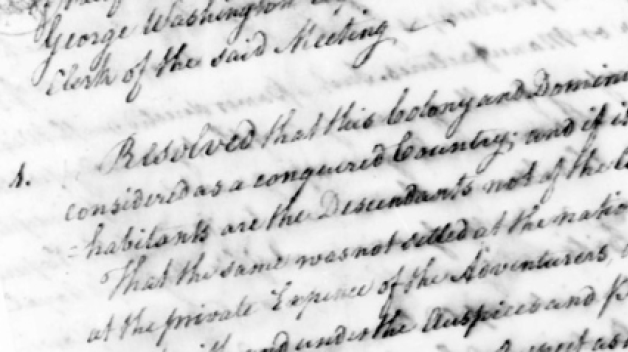 George Washington
Clerk of the said Meeting
1. Resolved that this Colony and
considered as a conquered Country; and if
=habitants are the Descendants not of the
That the same was not setled at the
at the private Expence of the Adventurers,
and under the Auspices and